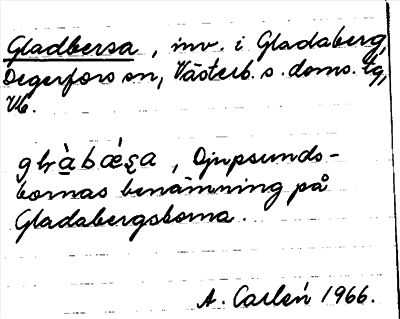 Gladbersa, inv. i Gladaberg,
Degerfors sn, Västerb. s. doms. tg,
Vb.
Djupsunds-
bornas benämning på
Gladabergsborna.
A. Carlén 1966.